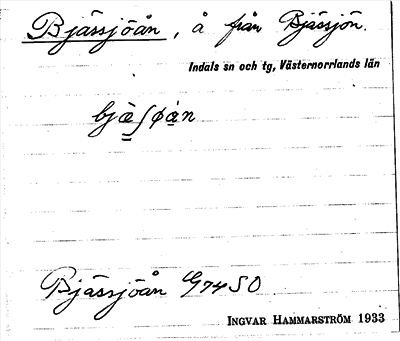 Bjässjöån, å från Bjässjön.
Indals sn och tg, Västernorrlands län
bjäʃøån
Bjässjöån G74SO
INGVAR HAMMARSTRÖM 1933